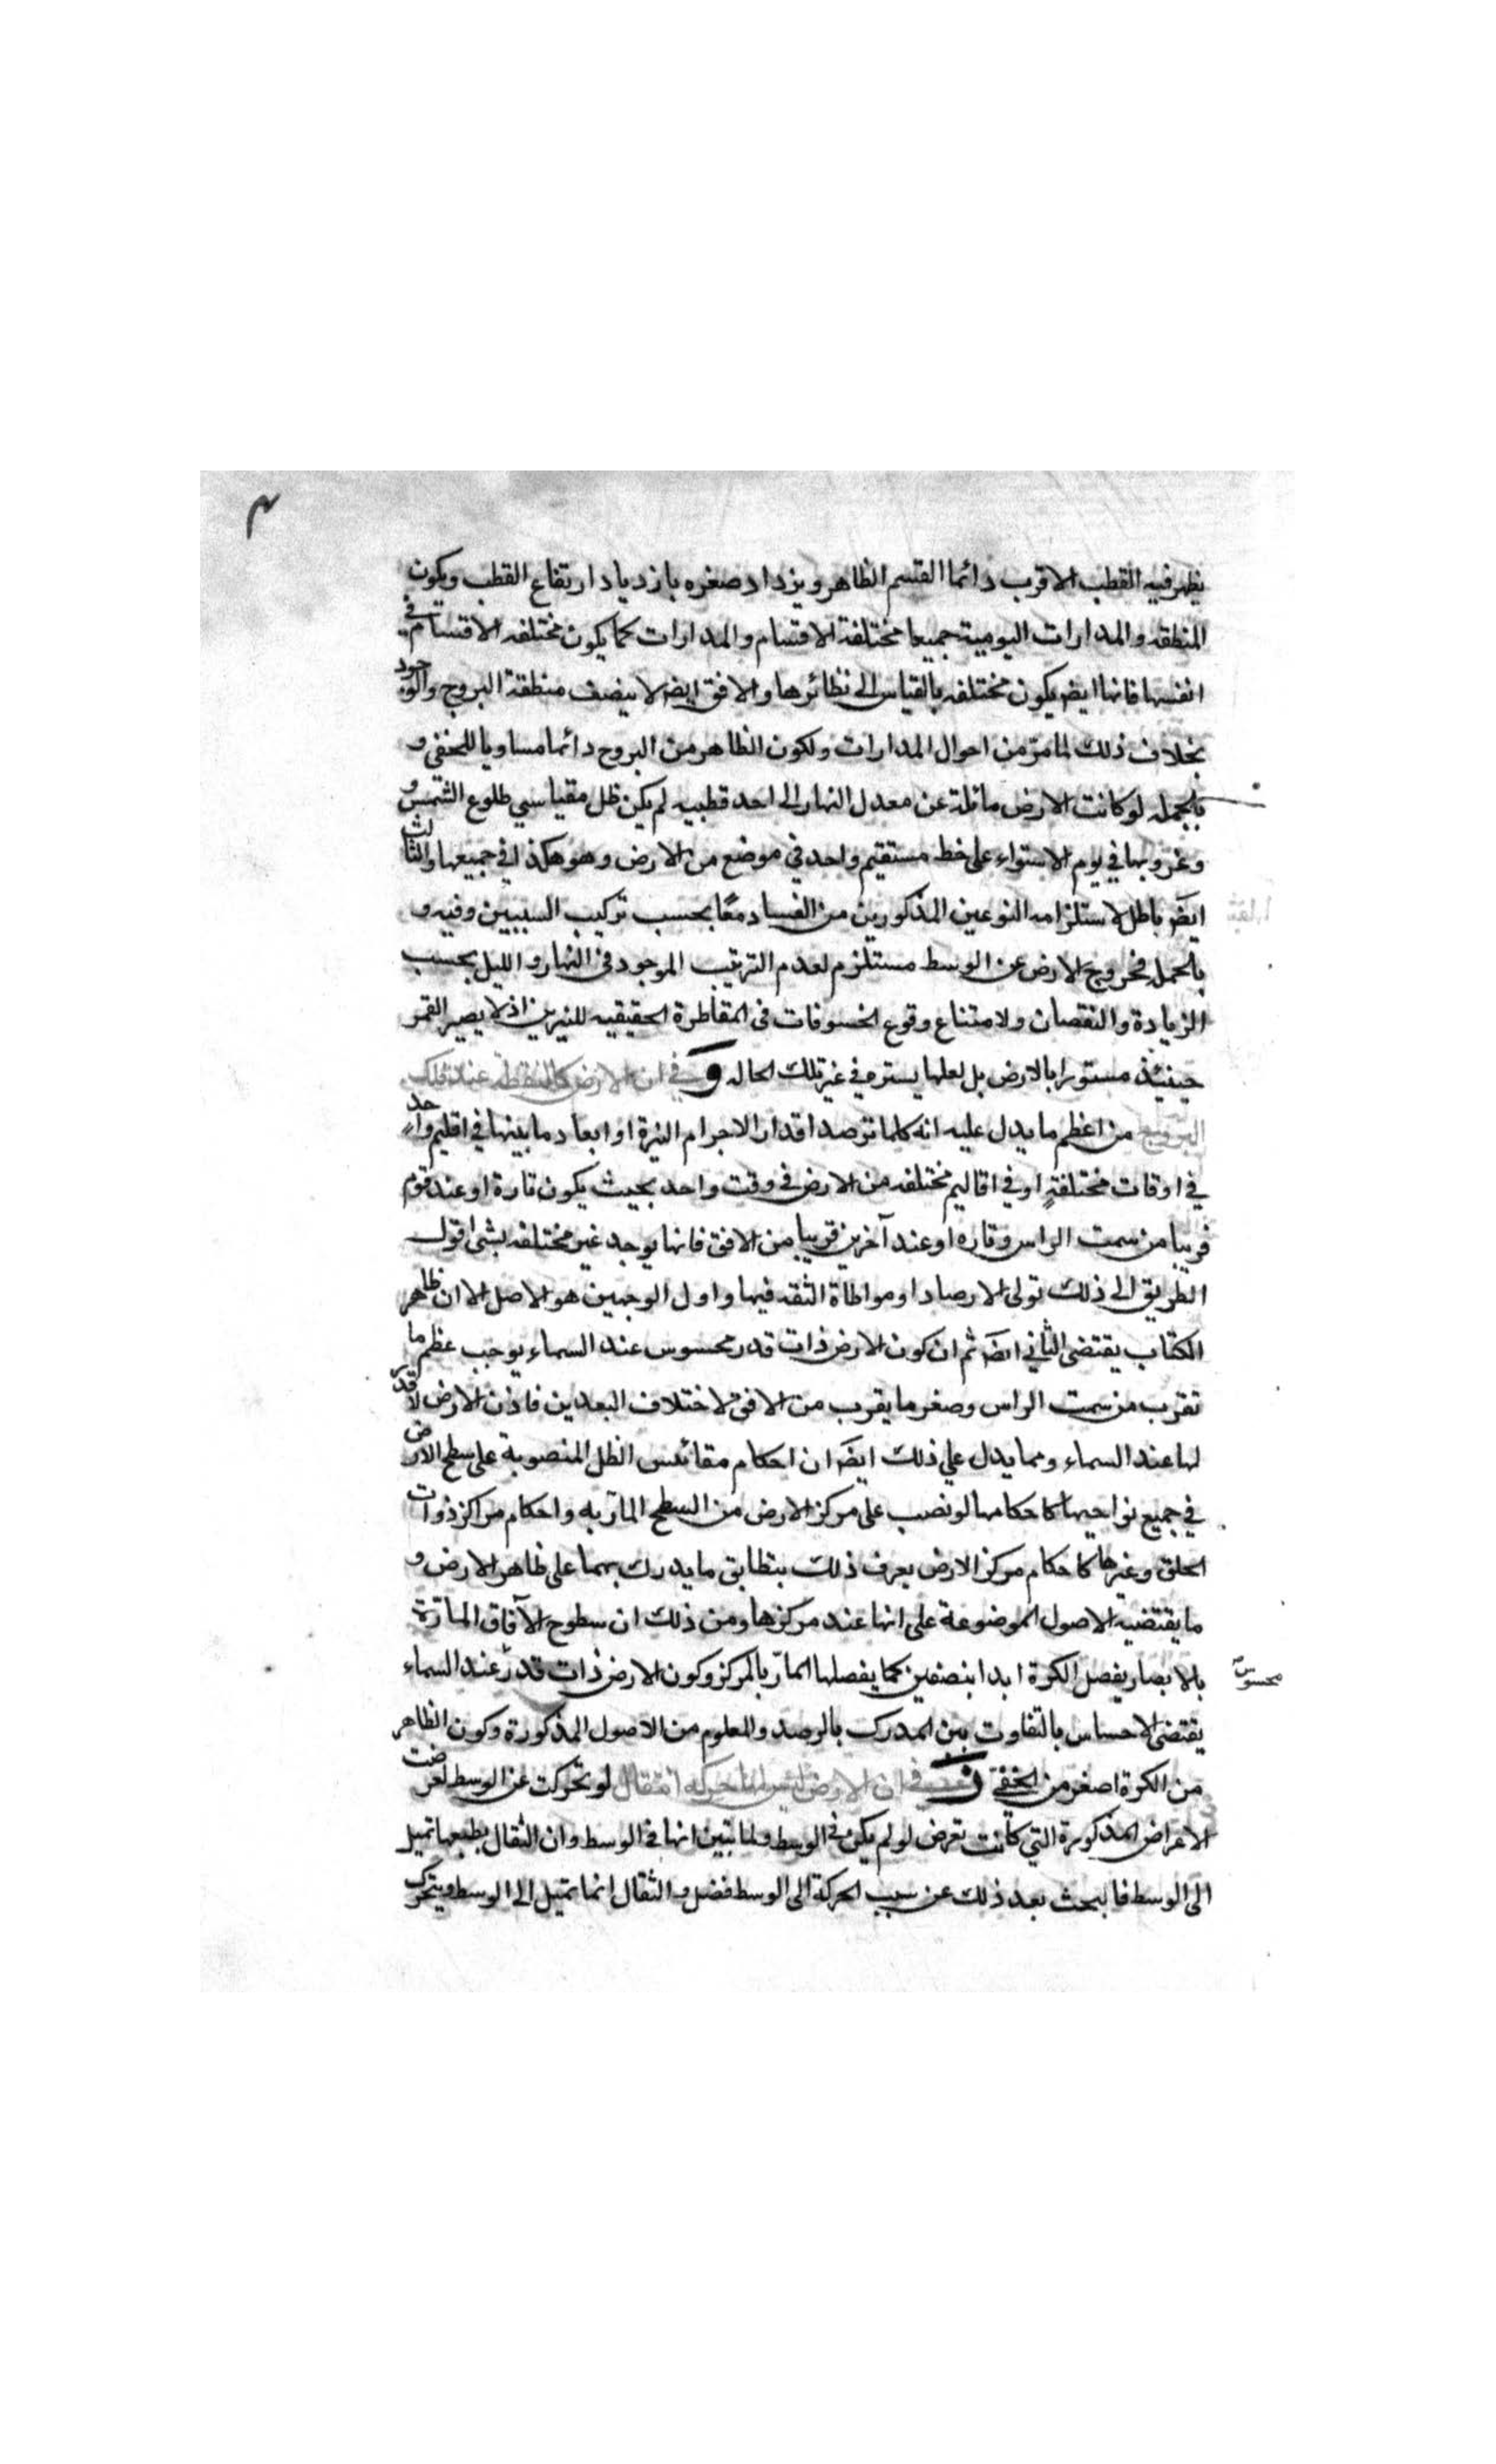 ٣
يظهر فيه القطب الاقرب دائما القسم الظاهر ويزداد صغره بازدياد ارتفاع القطب ويكون
المنطقه والمدارات اليومية جميعا مختلفة الاقسام والمدارات كما يكون مختلفه الاقسام في
انفسها فانها ايضه يكون مختلفه بالقياس الى نظائرها والافق ايضه لا ينصف منطقة البروج والوجود
بخلاف ذلك لما مرّ من احوال المدارات ولكون الظاهر من البروج دائما مساويا للخفي و
بالجمله لو كانت الارض مائلة عن معدل النهار الى احد قطبيه لم يكن ظل مقياسي طلوع الشمس و
وغروبها في يوم الاستواء على خط مستقيم واحد في موضع من الارض وهو هكذا في جميعها والثالث
ايضَ باطل لاستلزامه النوعين المذكورين من الفساد معًا بحسب تركيب السببين وفيه و
بالجمله فخروج الارض عن الوسط مستلزم لعدم الترتيب الموجود في النهار والليل بحسب
الزيادة والنقصان ولامتناع وقوع الخسوفات في المقاطرة الحقيقيه للنيرين اذ لا يصير القمر
حينئذ مستورا بالارض بل لعلها يستره في غير تلك الحاله وَ في ان الارض كالنقطة عند فلك
البروج من اعظم ما يدل عليه انه كلما ترصد اقدار الاجرام النيرة او ابعاد ما بينها في اقليم واحد
في اوقات مختلفةٍ او في اقاليم مختلفه من الارض في وقت واحد بحيث يكون تارة او عند قوم
قريبا من سمت الراس وتاره او عند آخرين قريبا من الافق فانها يوجد غير مختلفه بشي اقول
الطريق الى ذلك تولى الارصاد او مواطاة الثقه فيها واول الوجهين هو الاصل الا ان ظاهر
الكتاب يقتضى الثاني ايضَ ثم ان كون الارض ذات قدر محسوس عند السماء يوجب عظم ما
تقرب من سمت الراس وصغر ما يقرب من الافق لاختلاف البعدين فاذن الارض لا قدر
لها عند السماء ومما يدل علي ذلك ايضَ ان احكام مقائس الظل المنصوبة على سطح الارض
في جميع نواحيها كاحكامها لو نصب على مركز الارض من السطح المارّ به واحكام مراكز ذوات
الحلق وغيرها كاحكام مركز الارض يعرف ذلك بتطابق ما يدرك بهما على ظاهر الارض و
ما يقتضيه الاصول الموضوعة على انها عند مركزها ومن ذلك ان سطوح الآفاق المارّة
بالابصار يفصل الكرة ابدا بنصفين كما يفصلها المارّ بالمركز وكون الارض ذات قدر عند السماء
محسوس
يقتضى الاحساس بالتفاوت بين المدرك بالرصد والمعلوم من الاصول المذكورة وكون الظاهر
من الكرة اصغر من الخفيّ زَ في ان الارض ليس لها حركة انتقال لو تحركت عن الوسط لعرضت
الاعراض المذكورة التي كانت تعرض لو لم يكن في الوسط ولما تبين انها في الوسط وان الثقال بطبعها تميل
الى الوسط فالبحث بعد ذلك عن سبب الحركة الى الوسط فضل والثقال انما تميل الى الوسط ويتحرك